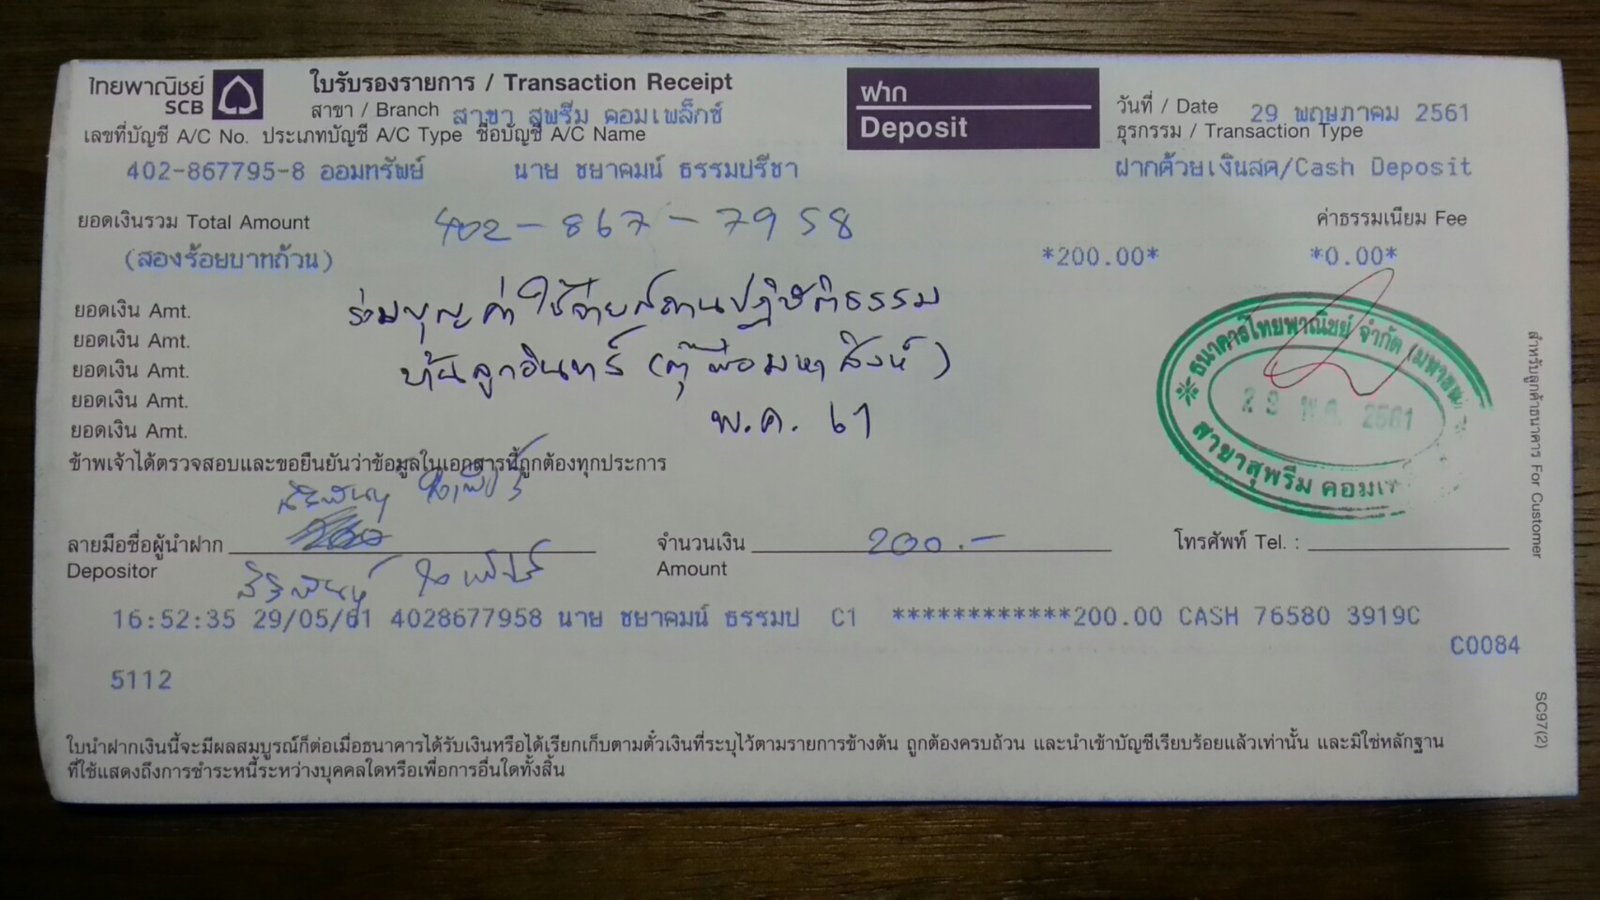 ไทยพาณิชย์
SCB
ใบรับรองรายการ / Transaction Receipt
สาขา / Branch สาขา สุพรีม คอมเพล็กซ์
ฝาก
Deposit
วันที่ / Date 29 พฤษภาคม 2561
เลขที่บัญชี A/C No. ประเภทบัญชี A/C Type ชื่อบัญชี A/C Name
ธุรกรรม / Transaction Type
402-867795-8 ออมทรัพย์ นาย ชยาคมน์ ธรรมปรีชา
ฝากด้วยเงินสด/Cash Deposit
ยอดเงินรวม Total Amount
402-867-7958
ค่าธรรมเนียม Fee
(สองร้อยบาทถ้วน) *200.00* *0.00*
ร่วมบุญค่าใช้จ่ายสถานปฏิบัติธรรม
บ้านลูกอินทร์ (ตุ๊พ่อมหาสิงห์)
พ.ค. 61
ยอดเงิน Amt.
ยอดเงิน Amt.
ยอดเงิน Amt.
ยอดเงิน Amt.
ยอดเงิน Amt.
ธนาคารไทยพาณิชย์ จำกัด (มหาชน)
29 พ.ค. 2561
สาขาสุพรีม คอมเ
ข้าพเจ้าได้ตรวจสอบและขอยืนยันว่าข้อมูลในเอกสารนี้ถูกต้องทุกประการ
ลายมือชื่อผู้นำฝาก
Depositor
จำนวนเงิน 200.-
Amount
โทรศัพท์ Tel. :
16:52:35 29/05/61 4028677958 นาย ชยาคมน์ ธรรมป C1 ************200.00 CASH 76580 3919C
C0084
5112
ใบนำฝากเงินนี้จะมีผลสมบูรณ์ก็ต่อเมื่อธนาคารได้รับเงินหรือได้เรียกเก็บตามตั๋วเงินที่ระบุไว้ตามรายการข้างต้น ถูกต้องครบถ้วน และนำเข้าบัญชีเรียบร้อยแล้วเท่านั้น และมิใช่หลักฐาน
ที่ใช้แสดงถึงการชำระหนี้ระหว่างบุคคลใดหรือเพื่อการอื่นใดทั้งสิ้น
สำหรับลูกค้าธนาคาร For Customer
SC97(2)